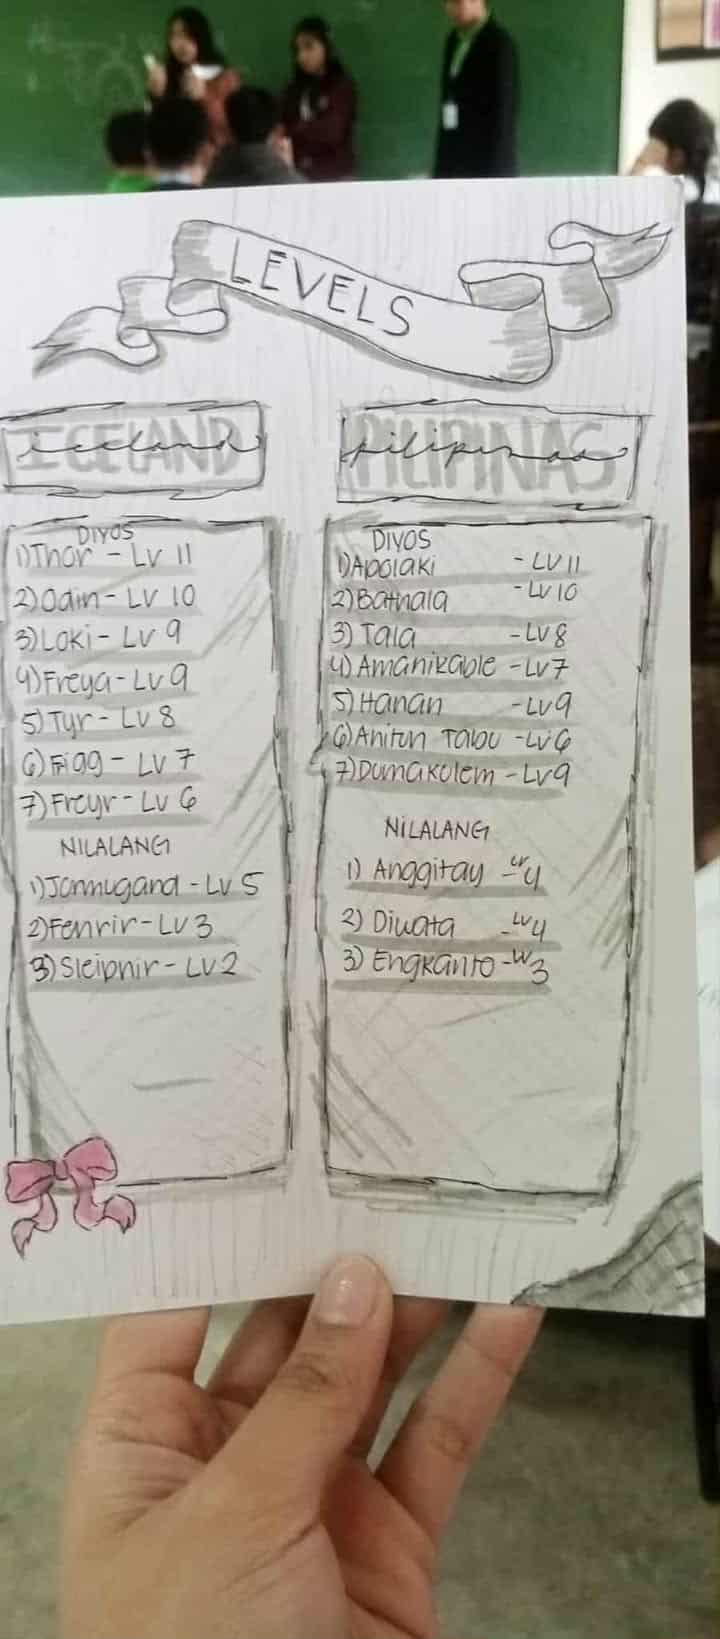 LEVELS
ICELAND
iceland
DIYOS
1) Thor - Lv 11
2) Odin - Lv 10
3) Loki - Lv 9
4) Freya - Lv 9
5) Tyr - Lv 8
6) Frigg - Lv 7
7) Freyr - Lv 6
NILALANG
1) Jormugand - Lv 5
2) Fenrir - Lv 3
3) Sleipnir - Lv 2
PILIPINAS
pilipinas
DIYOS
1) Apolaki - Lv 11
2) Bathala - Lv 10
3) Tala - Lv 8
4) Amanikable - Lv 7
5) Hanan - Lv 9
6) Anitun Tabu - Lv 6
7) Dumakulem - Lv 9
NILALANG
1) Anggitay - Lv 4
2) Diwata - Lv 4
3) Engkanto - Lv 3